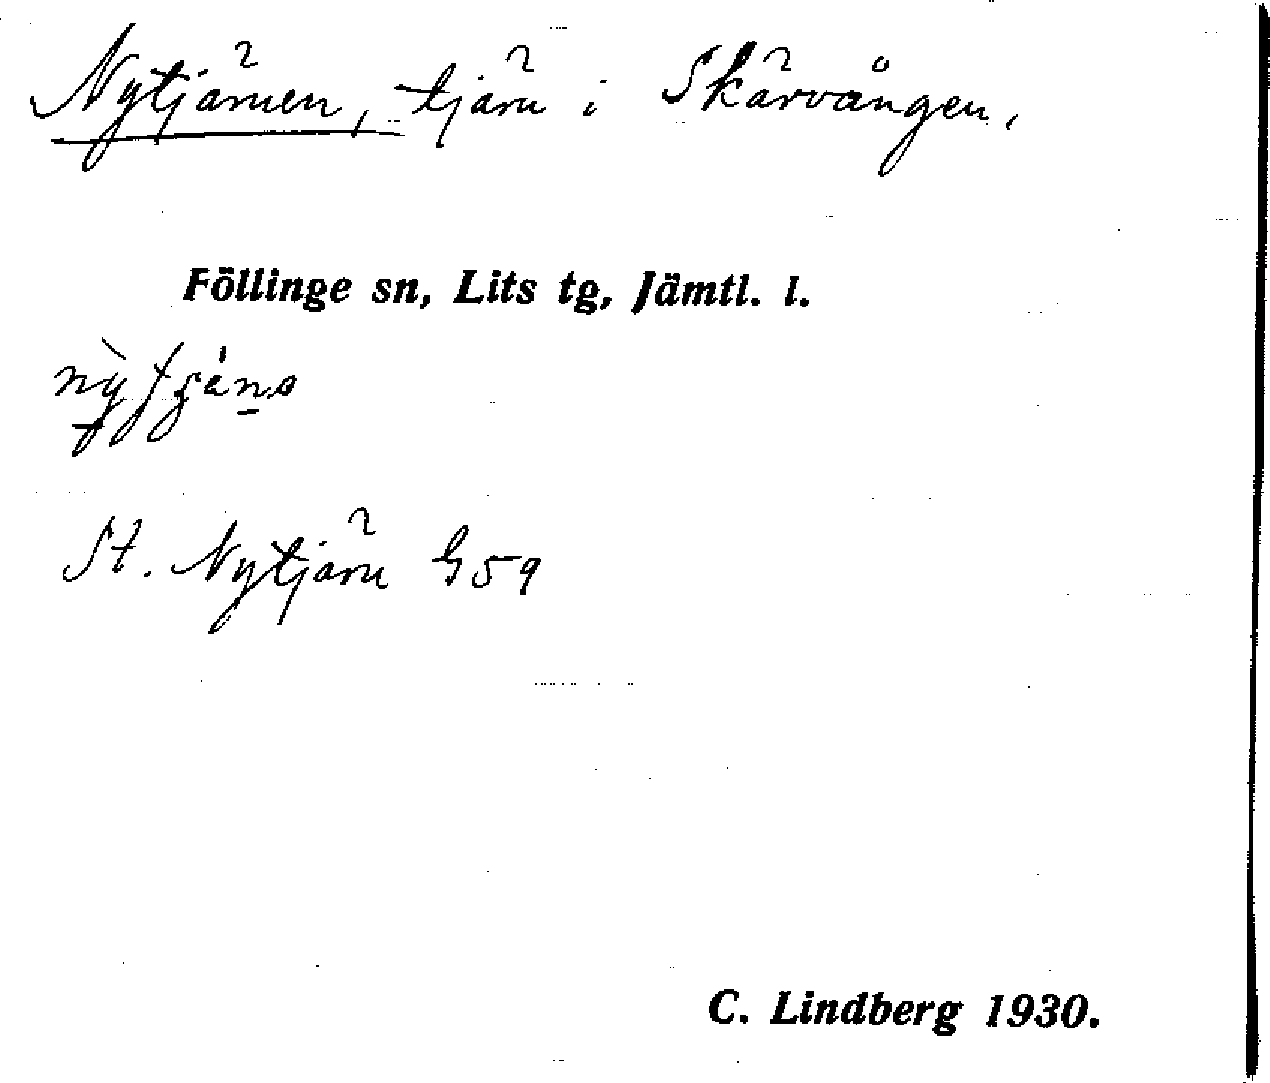 Nytjärnen, tjärn i Skärvången.
Föllinge sn, Lits tg, Jämtl. l.
St. Nytjärn G59
C. Lindberg 1930.